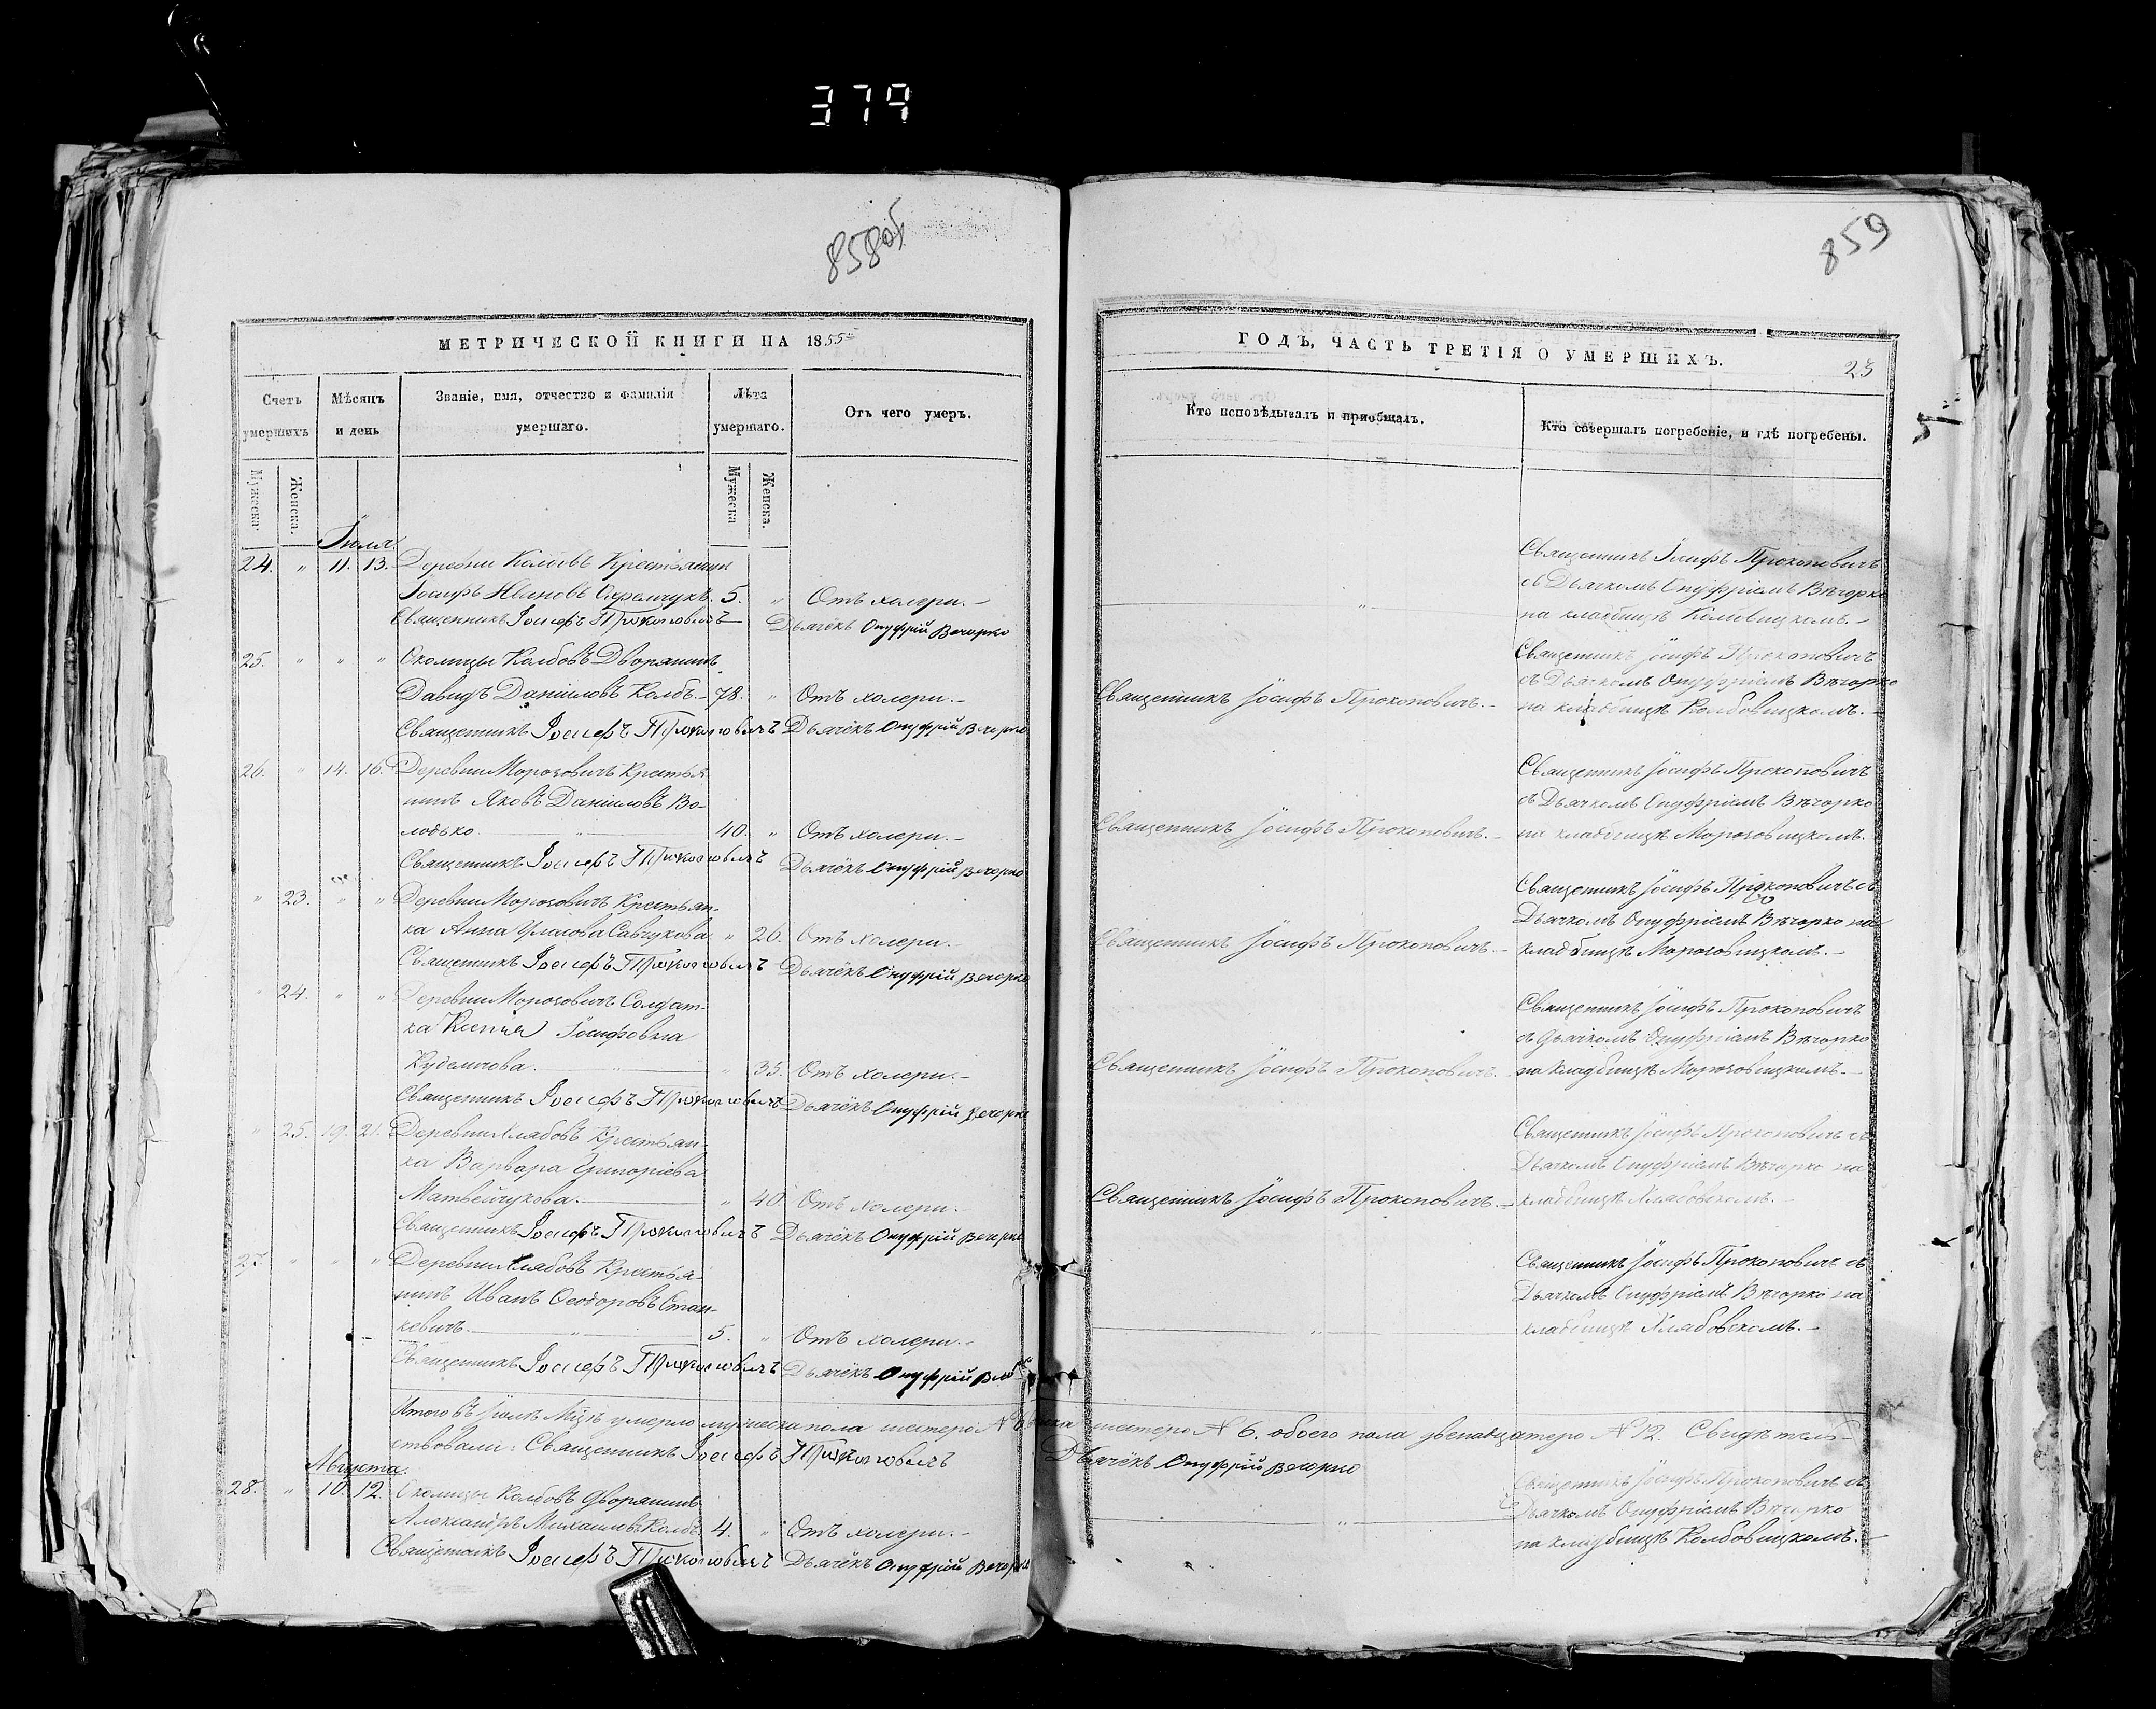 379
858 об
859
МЕТРИЧЕСКОЙ КНИГИ НА 1855
Счетъ умершихъ
Мѣсяцъ и день
Званіе, имя, отчество и фамилія умершаго.
Лѣта умершаго.
Отъ чего умеръ.
Мужеска.
Женска.
Мужеска
Женска.
Іюля.
24. " 11. 13. Деревни Крестьянинъ
Іосифъ Ивановъ 5. " Отъ холери.
Священникъ Іосифъ Прокоповичъ Дьячёкъ Онуфрій Вечорко
25. " " " Околицы Колбовъ Дворянинъ
Давидъ Даніиловъ Колбъ. 78. " Отъ холери.
Священникъ Іосифъ Прокоповичъ Дьячёкъ Онуфрій Вечорко
26. " 14. 16. Деревни Морозовичъ Крестья-
нинъ Яковъ Даніиловъ Во-
лодько. " 40. " Отъ холери.
Священникъ Іосифъ Прокоповичъ Дьячёкъ Онуфрій Вечорко
" 23. " " Деревни Морозовичъ Крестьян-
ка Анна Савчукова " 26. Отъ холери.
Священникъ Іосифъ Прокоповичъ Дьячёкъ Онуфрій Вечорко
" 24. " " Деревни Морозовичъ Солдат-
ка Ксенія Іосифовна
" 35. Отъ холери.
Священникъ Іосифъ Прокоповичъ Дьячёкъ Онуфрій Вечорко
" 25. 19. 21. Деревни Хлябовъ Крестьян-
ка Варвара Григоріева
Матвейчукова. " 40 Отъ холери.
Священникъ Іосифъ Прокоповичъ Дьячёкъ Онуфрій Вечорко
27. " " " Деревни Хлябовъ Крестья-
нинъ Иванъ Ѳеодоровъ Стан-
кевичъ. " 5. " Отъ холери.
Священникъ Іосифъ Прокоповичъ Дьячёкъ Онуфрій
Итого въ Іюлѣ Мцѣ умерло мужеска пола шестеро № 6. шестеро № 6. обоего пола двенадцатеро № 12. Свидѣтель-
ствовали: Священникъ Іосифъ Прокоповичъ Дьячёкъ Онуфрій Вечорко
Августа.
28. " 10. 12. Околицы Колбовъ Дворянинъ
Александръ Михаиловъ Колбъ 4. " Отъ холери.
Священникъ Іосифъ Прокоповичъ Дьячёкъ Онуфрій Вечорко
ГОДЪ, ЧАСТЬ ТРЕТІЯ О УМЕРШИХЪ.
23
Кто исповѣдывалъ и пріобщалъ.
Кто совершалъ погребеніе, и гдѣ погребены.
5
Священникъ Іосифъ Прокоповичъ
съ Дьячкомъ Онуфріемъ Вѣчорко
" на кладбищѣ
Священникъ Іосифъ Прокоповичъ
съ Дьячкомъ Онуфріемъ Вѣчорко
Священникъ Іосифъ Прокоповичъ. на кладбищѣ Колбовицкомъ.
Священникъ Іосифъ Прокоповичъ
съ Дьячкомъ Онуфріемъ Вѣчорко
Священникъ Іосифъ Прокоповичъ. на кладбищѣ Морозовицкомъ.
Священникъ Іосифъ Прокоповичъ съ
Дьячкомъ Онуфріемъ Вѣчорко на
Священникъ Іосифъ Прокоповичъ. кладбищѣ Морозовицкомъ.
Священникъ Іосифъ Прокоповичъ
съ Дьячкомъ Онуфріемъ Вѣчорко
Священникъ Іосифъ Прокоповичъ. на кладбищѣ Морозовицкомъ.
Священникъ Іосифъ Прокоповичъ съ
Дьячкомъ Онуфріемъ Вѣчорко на
Священникъ Іосифъ Прокоповичъ. кладбищѣ Хлябовскомъ.
Священникъ Іосифъ Прокоповичъ съ
Дьячкомъ Онуфріемъ Вѣчорко на
" кладбищѣ Хлябовскомъ.
Священникъ Іосифъ Прокоповичъ съ
Дьячкомъ Онуфріемъ Вѣчорко
" на кладбищѣ Колбовицкомъ.